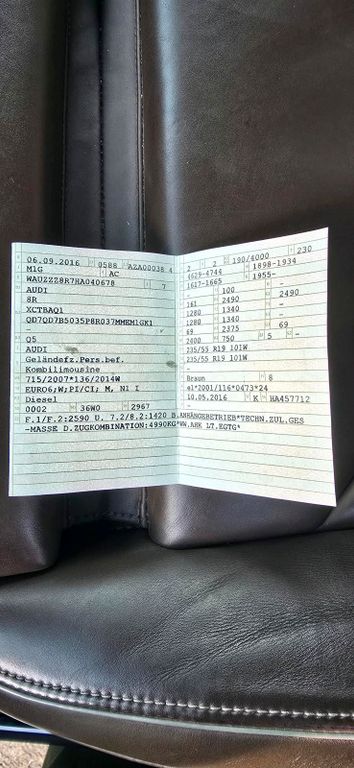 06.09.2016 0588 AZA00038 4
M1G AC
WAUZZZ8R7HA040678 7
AUDI
8R
XCTBAQ1
QD7QD7B5035P8R037MMEM1GK1
-
Q5
AUDI
Geländefz.Pers.bef.
Kombilimousine
715/2007*136/2014W
EURO6;W;PI/CI; M, N1 I
Diesel
0002 36W0 2967
2 2 190/4000 230
4629-4744 1898-1934
1617-1665 1955-
- 100 -
181 2490 2490
1280 1340 -
1280 1340 -
69 2375 69
2400 750 5 -
235/55 R19 101W
235/55 R19 101W
-
Braun 8
e1*2001/116*0473*24
10.05.2016 K HA457712
F.1/F.2:2590 U. 7.2/8.2:1420 B.ANHÄNGEBETRIEB*TECHN.ZUL.GES
-MASSE D.ZUGKOMBINATION:4990KG*WW.AHK LT.EGTG*